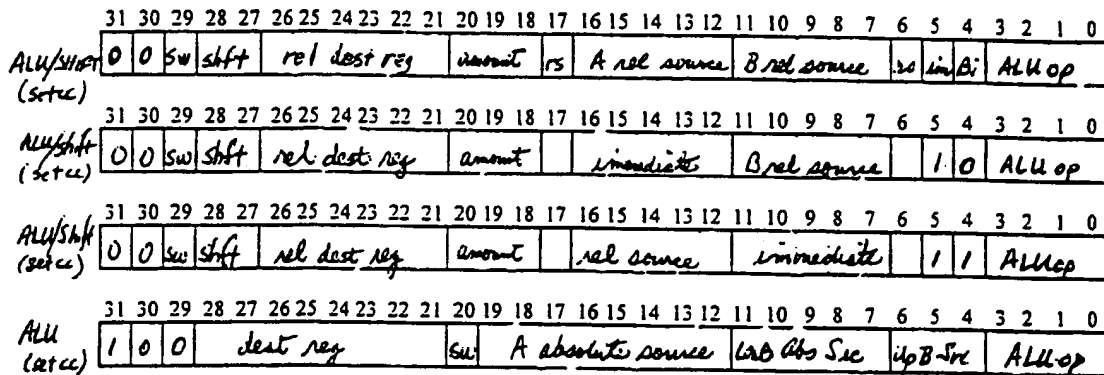 31 30 29 28 27 26 25 24 23 22 21 20 19 18 17 16 15 14 13 12 11 10 9 8 7 6 5 4 3 2 1 0
ALU/Shift 0 0 sw shft rel dest reg amount rs A rel source B rel source im Bi ALU op
(setcc)
31 30 29 28 27 26 25 24 23 22 21 20 19 18 17 16 15 14 13 12 11 10 9 8 7 6 5 4 3 2 1 0
ALU/Shift 0 0 sw shft rel dest reg amount immediate B rel source 1 0 ALU op
(setcc)
31 30 29 28 27 26 25 24 23 22 21 20 19 18 17 16 15 14 13 12 11 10 9 8 7 6 5 4 3 2 1 0
ALU/Shft 0 0 sw shft rel dest reg amount rel source immediate 1 1 ALUop
(setcc)
31 30 29 28 27 26 25 24 23 22 21 20 19 18 17 16 15 14 13 12 11 10 9 8 7 6 5 4 3 2 1 0
ALU 1 0 0 dest reg sw A absolute source B Abs Src B-Src ALU-op
(setcc)